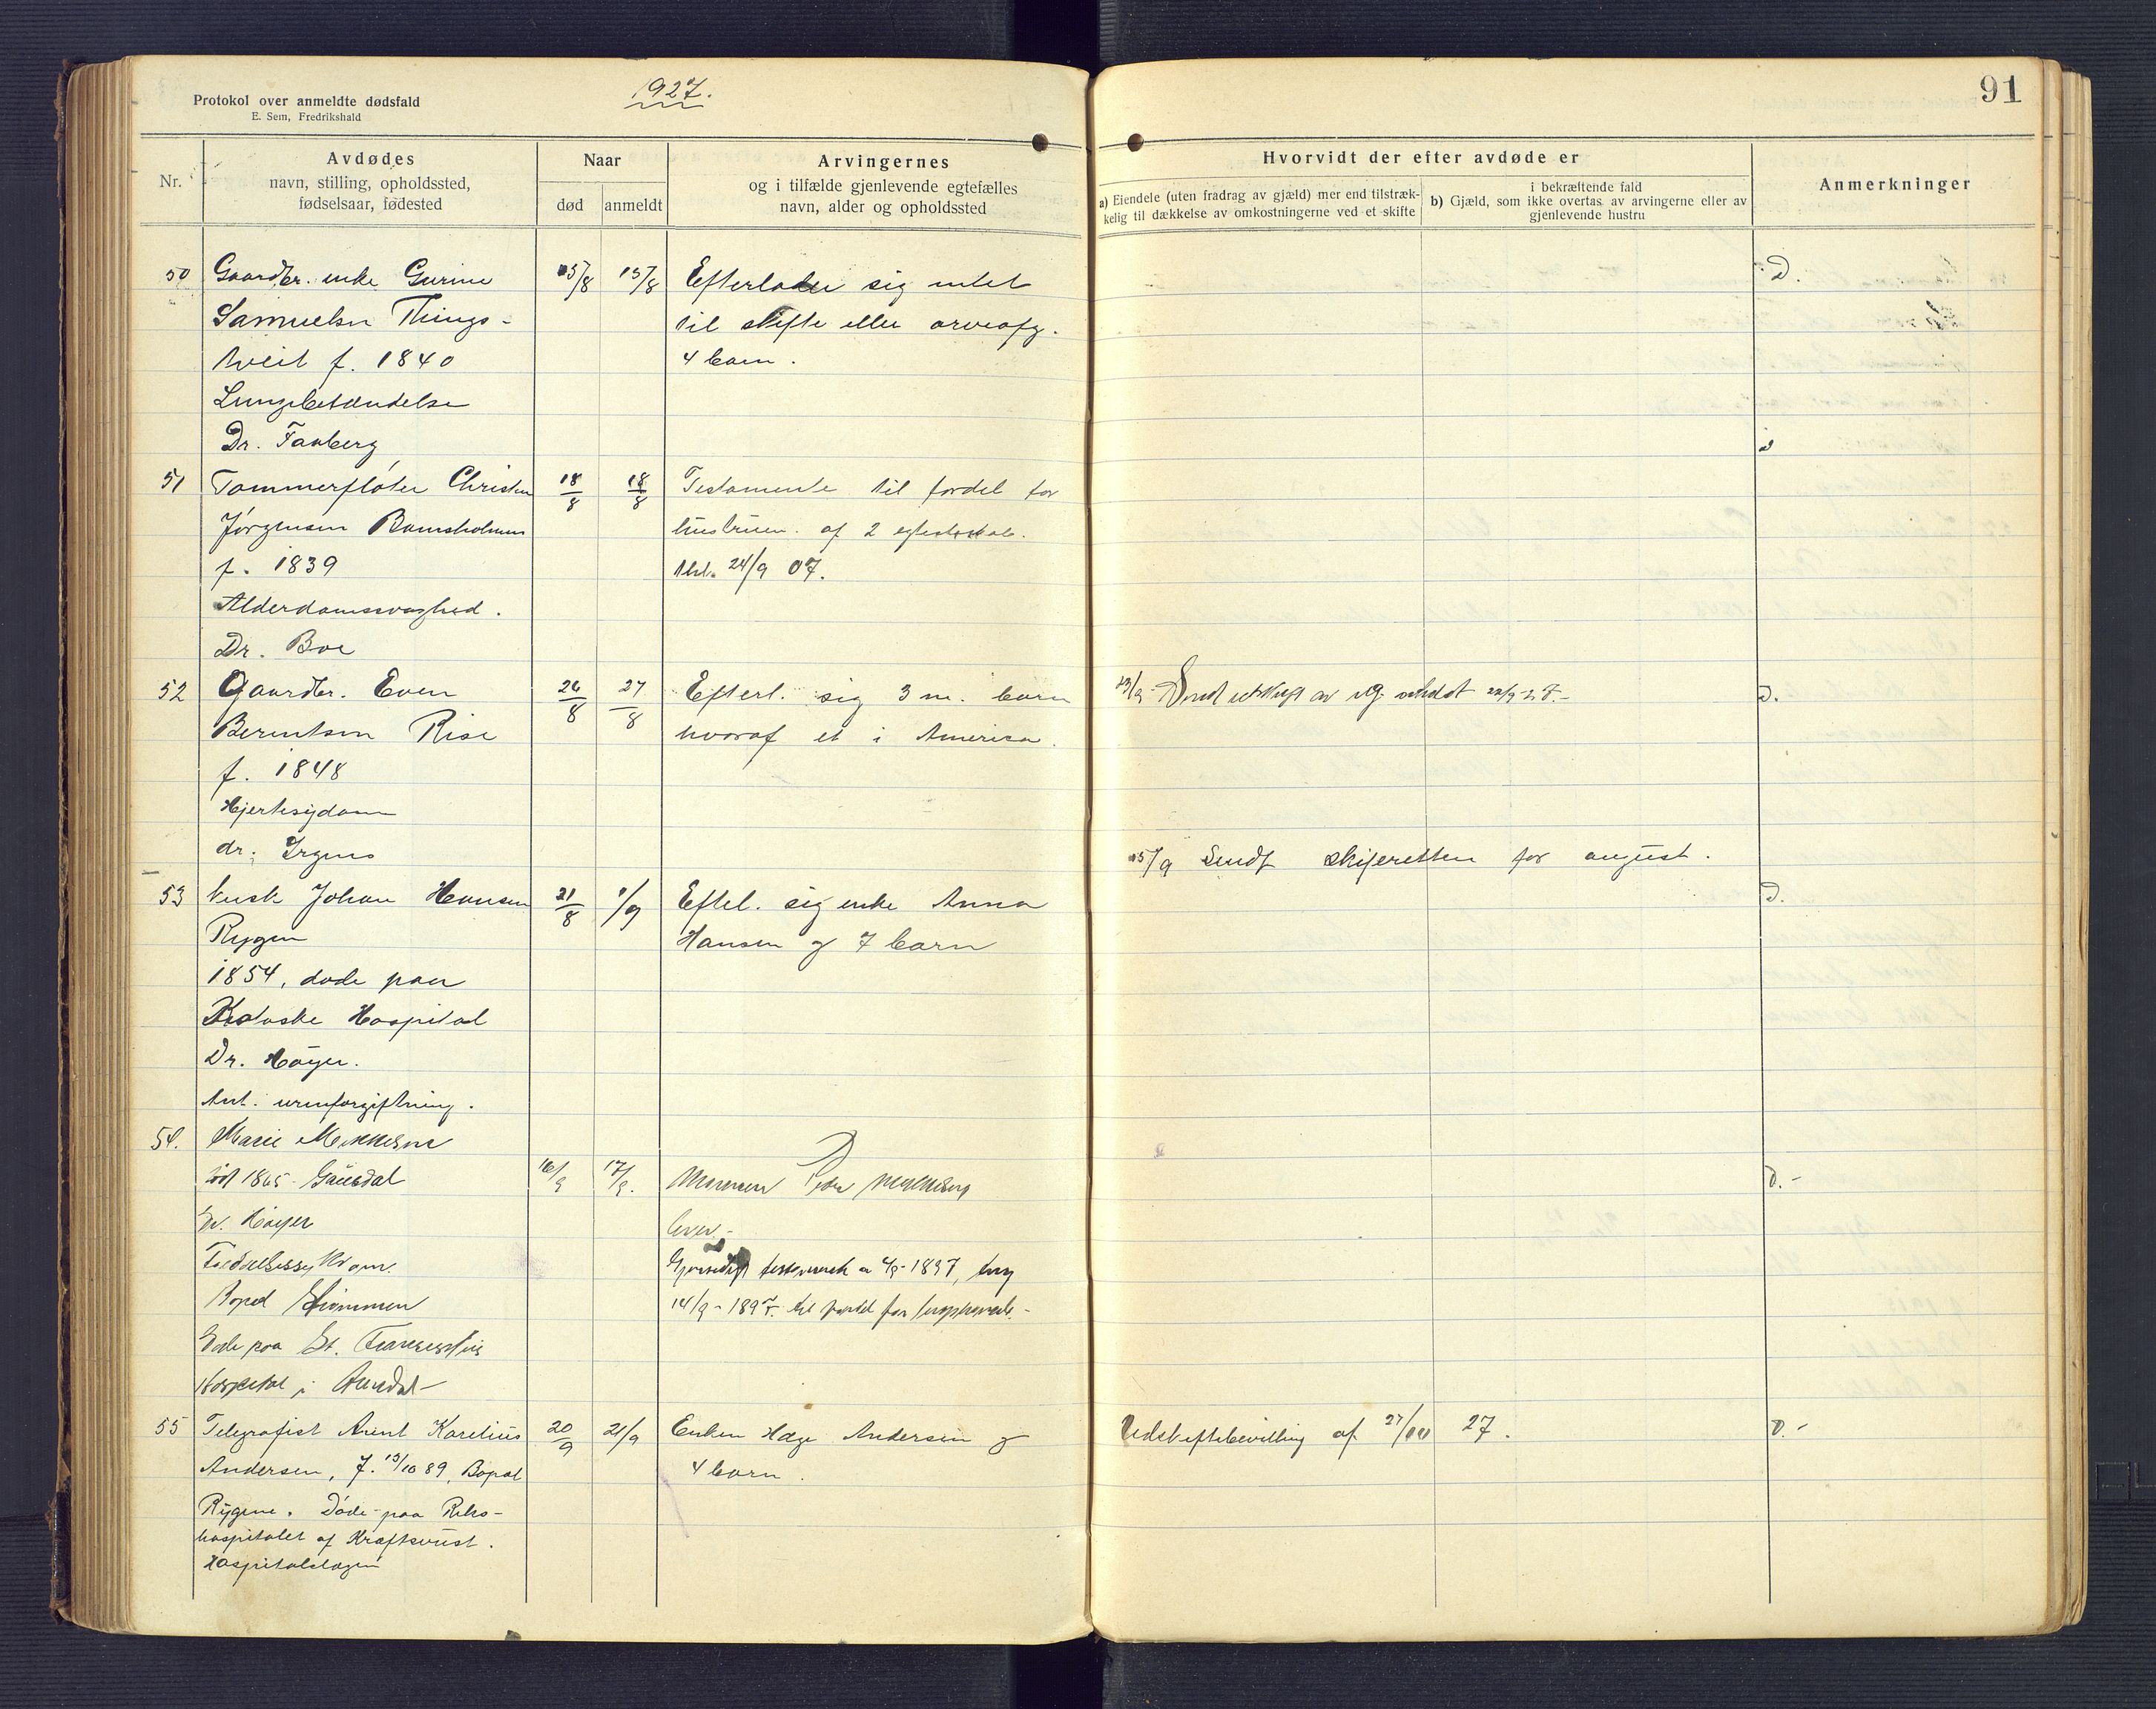 Protokol over anmeldte dødsfald
E. Sem, Fredrikshald
1927.
91
Nr.
Avdødes
navn, stilling, opholdssted,
fødselsaar, fødested
Naar
død
anmeldt
Arvingernes
og i tilfælde gjenlevende egtefælles
navn, alder og opholdssted
Hvorvidt der efter avdøde er
a) Eiendele (uten fradrag av gjæld) mer end tilstræk-
kelig til dækkelse av omkostningerne ved et skifte
i bekræftende fald
b) Gjæld, som ikke overtas av arvingerne eller av
gjenlevende hustru
Anmerkninger
50 Gaardbr. enke Gurine 15/8 15/8 Efterlader sig intet D.
Samuelsen Things- til skifte eller arveafg.
tveit f. 1840 4 barn.
Lungebetændelse
Dr. Faaberg
51 Tømmerfløter Christen 18/8 18/8 Testamente til fordel for
Jørgensen Bomsholmen hustruen. af 2 
f. 1839 24/9 07.
Alderdomssvaghed.
Dr. Boe
52 Gaardbr. Even 26/8 27/8 Efterl. sig 3 m. barn 23/9 Sendt utskrift av 22/9-27.- D.
Berentsen Rise hvoraf et i America.
f. 1848
Hjertesygdom
dr. Irgens
15/9 Sendt skifteretten for august.
53 Johan Hansen 21/8 1/9 Eftel. sig enke Anna D.
Rygen Hansen og 7 barn
1854, døde paa
Hospital
Dr. Høyer.
Ant. urinforgiftning.
54. Marie Mikkelsen
født 1865 16/9 17/9. Petra Mikkelsen D.-
Dr. Høyer lever.-
Gjensidigt testamente 1897,
Bopel Strømmen 14/9-1897. til fordel for
Døde paa St. Franciskus
Hospital i Arendal-
55 Telegrafist Arent Karelius 20/9 21/9 Enken Andersen og Udskiftebevilling af 27/10 27. D.-
Andersen, f. 13/10 89, Bopæl 4 barn.
Rygene. Døde paa Riks-
hospitalet af Kraftsvust.
Hospitalslægen